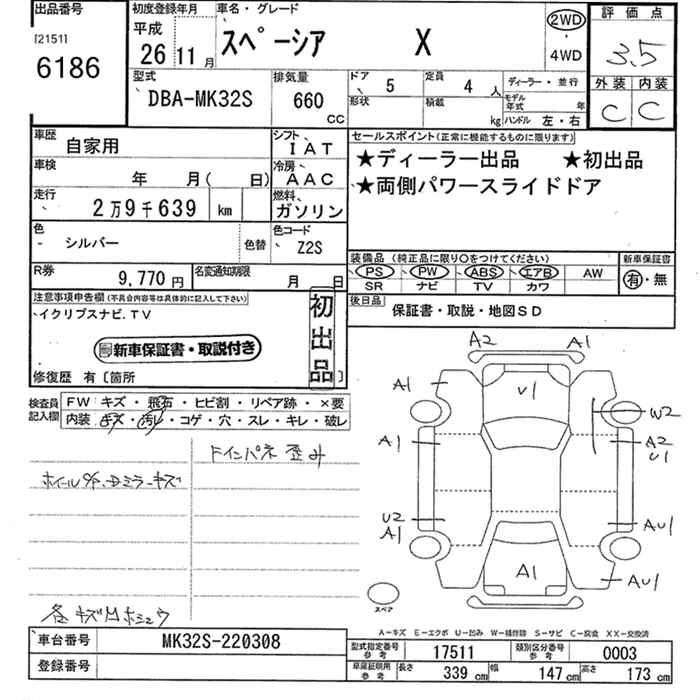 出品番号
[21511]
6186
初度登録年月
平成
26年11月
車名・グレード
スペーシア X
2WD
・
4WD
評価点
3.5
外装 内装
C C
型式
DBA-MK32S
排気量
660
CC
ドア 5
形状
定員 4 人
積載 kg
ディーラー・並行
モデル年式 年
ハンドル 左・右
車歴 自家用
車検 年 月( 日)
走行 2万9千639 km
シフト IAT
冷房 AAC
燃料 ガソリン
セールスポイント(正常に機能するものに限ります)
★ディーラー出品 ★初出品
★両側パワースライドドア
色 シルバー
色替
色コード Z2S
R券 9,770円
名変通知期限 月 日
装備品 (純正品に限り○をつけてください)
PS PW ABS エアB AW
SR ナビ TV カワ
新車保証書
有・無
後日品 保証書・取説・地図SD
注意事項申告欄(不具合内容等は具体的に記入して下さい)
イクリプスナビ.TV
新車保証書・取説付き
初出品
修復歴 有〔箇所 〕
検査員記入欄
FW キズ・飛石・ヒビ割・リペア跡・×要
内装 キズ・汚レ・コゲ・穴・スレ・キレ・破レ
インパネ歪み
ミラーキズ
各キズ
A2 A1
A1 U1
W2
A1 A2
U1
U2 AU1
A1
A1 AU1
スペア
A-キズ E-エクボ U-凹み W-補修跡 S-サビ C-腐食 XX-交換済
車台番号 MK32S-220308
登録番号
型式指定番号参考 17511
類別区分番号参考 0003
車庫証明用参考 長さ 339 cm 幅 147 cm 高さ 173 cm